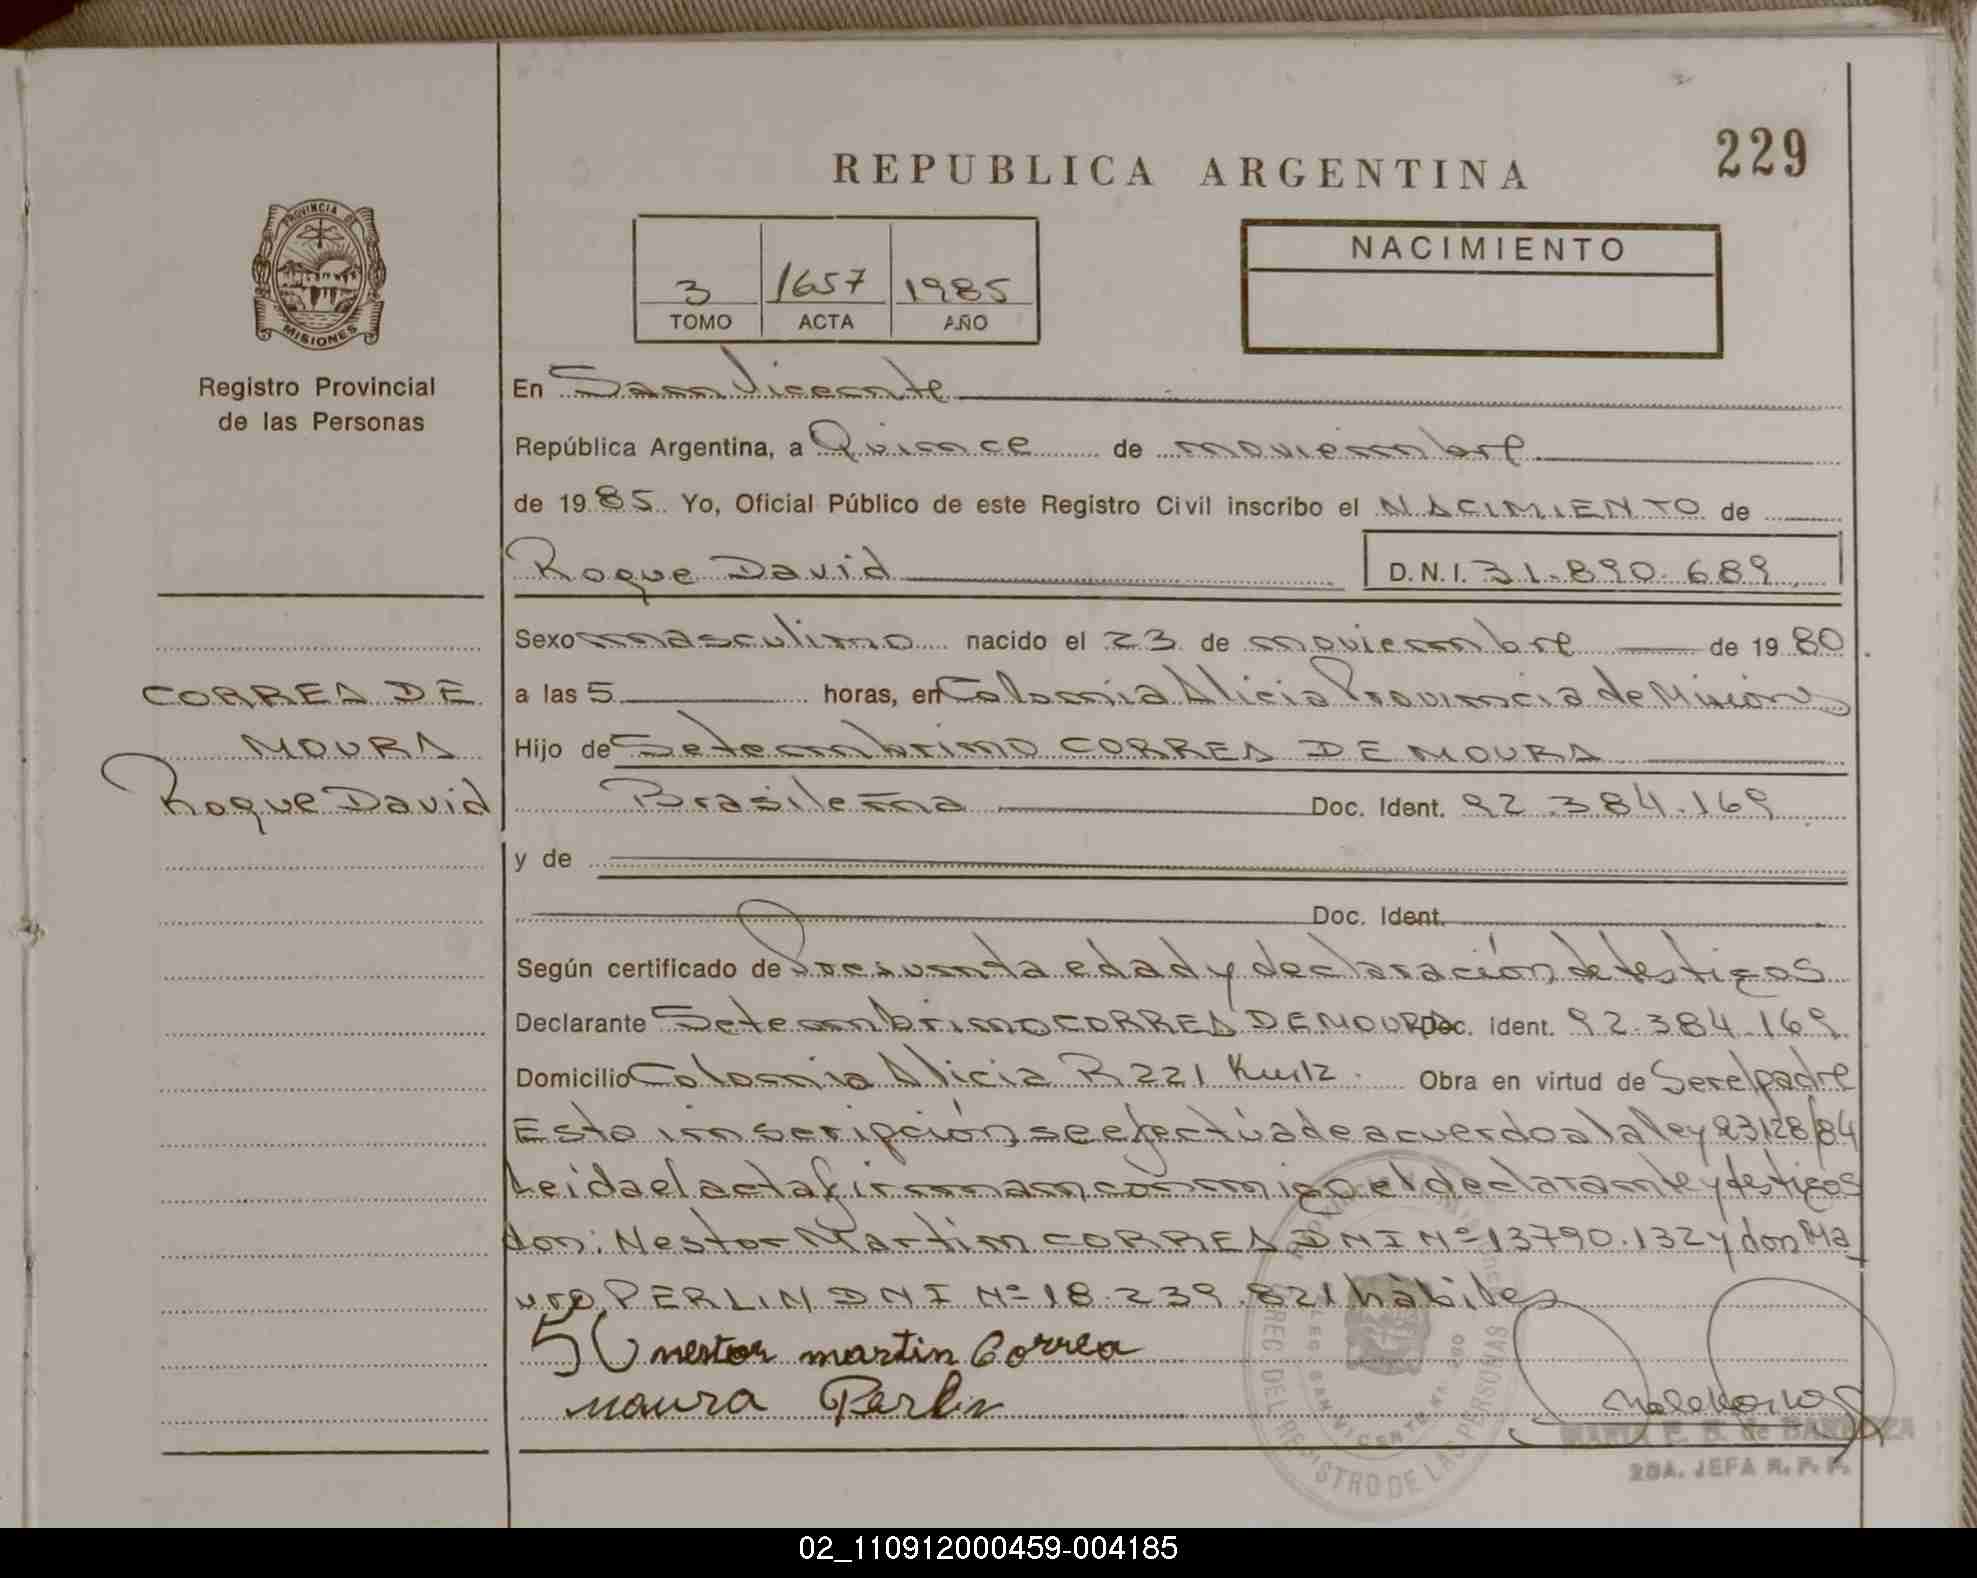 229
REPUBLICA ARGENTINA
PROVINCIA DE
MISIONES
Registro Provincial
de las Personas
3 1657 1985
TOMO ACTA AÑO
NACIMIENTO
En San Vicente
República Argentina, a Quince de noviembre
de 1985 Yo, Oficial Público de este Registro Civil inscribo el NACIMIENTO de
Roque David D.N.I. 31.890.689
Sexo masculino nacido el 23 de noviembre de 1980
CORREA DE
MOURA
Roque David
a las 5 horas, en Colonia Alicia Provincia de Misiones
Hijo de Setembrino CORREA DE MOURA
Brasileña Doc. Ident. 92.384.169
y de
Doc. Ident.
Según certificado de Presunta edad y declaración de testigos
Declarante Setembrino CORREA DE MOURA Doc. Ident. 92.384.169
Domicilio Colonia Alicia R 221 Obra en virtud de Ser el padre
Esta inscripción se efectúa de acuerdo a la ley 23128/84
Leida el acta firman conmigo el declarante y testigos
don: Nestor Martin CORREA DNI Nº 13790.132 y don Ma
uro PERLIN DNI Nº 18.239.821 hábiles
nestor martin Correa
maura Perlin
REG. DEL REGISTRO DE LAS PERSONAS
SAN VICENTE
MARIA E. B. de
2DA. JEFA R. P. P.
02_110912000459-004185